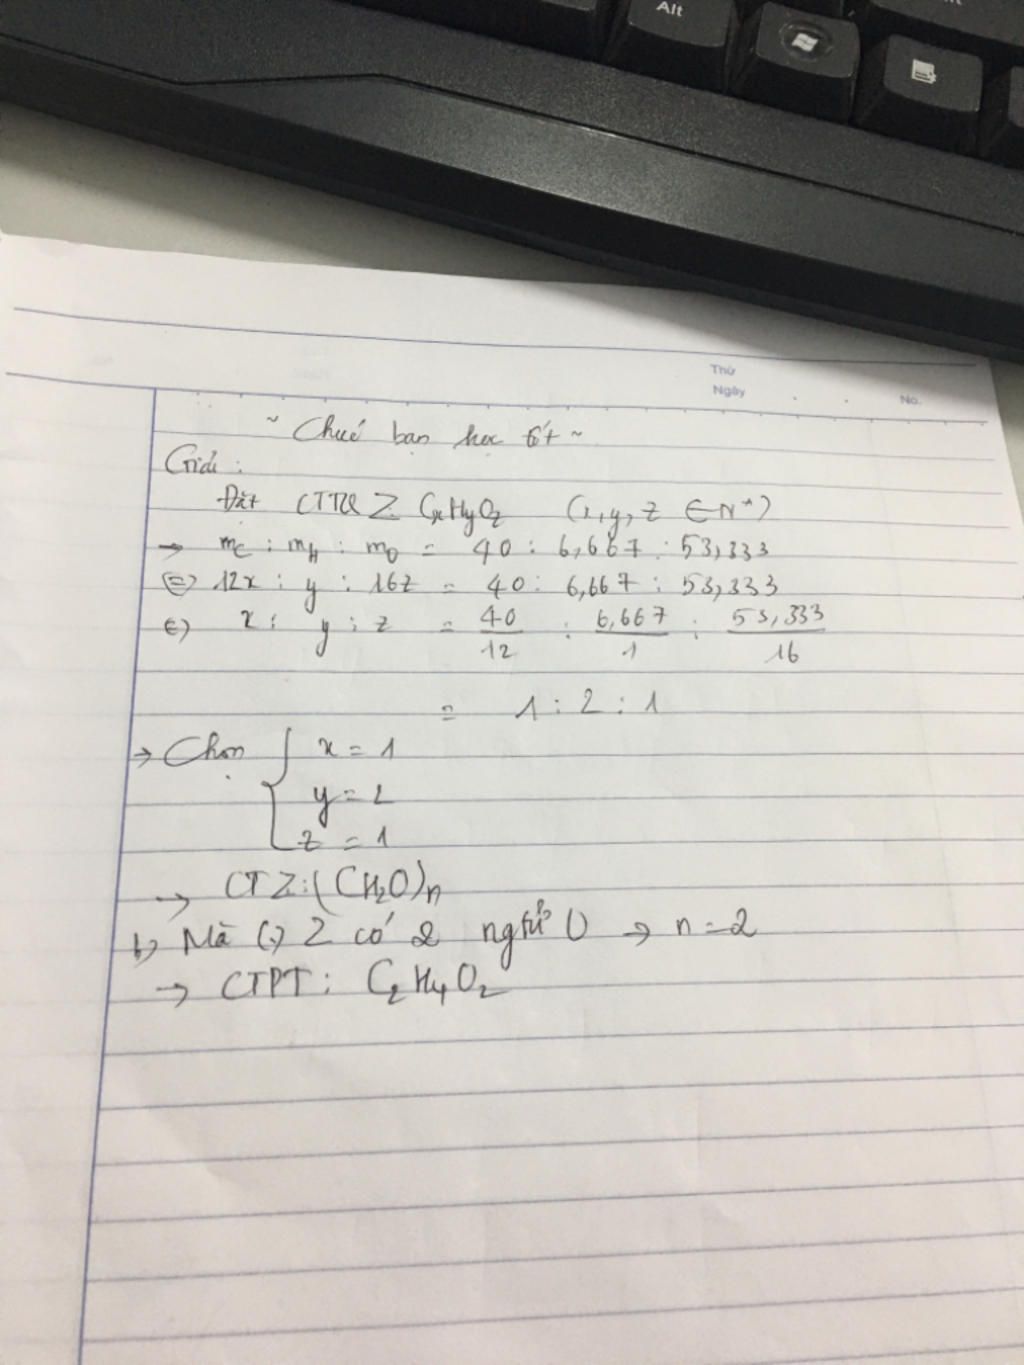 Alt
Thứ
Ngày
No.
~ Chúc bạn học tốt ~
Giải :
Đặt CTTQ Z CxHyOz (x,y,z ∈ N*)
→ mC : mH : mO = 40 : 6,667 : 53,333
(=) 12x : y : 16z = 40 : 6,667 : 53,333
(=) x : y : z = 40/12 : 6,667/1 : 53,333/16
= 1 : 2 : 1
→ Chọn { x = 1
y = 2
z = 1
→ CT Z : (CH2O)n
b, Mà (.) Z có 2 ngtử O → n = 2
→ CTPT : C2H4O2